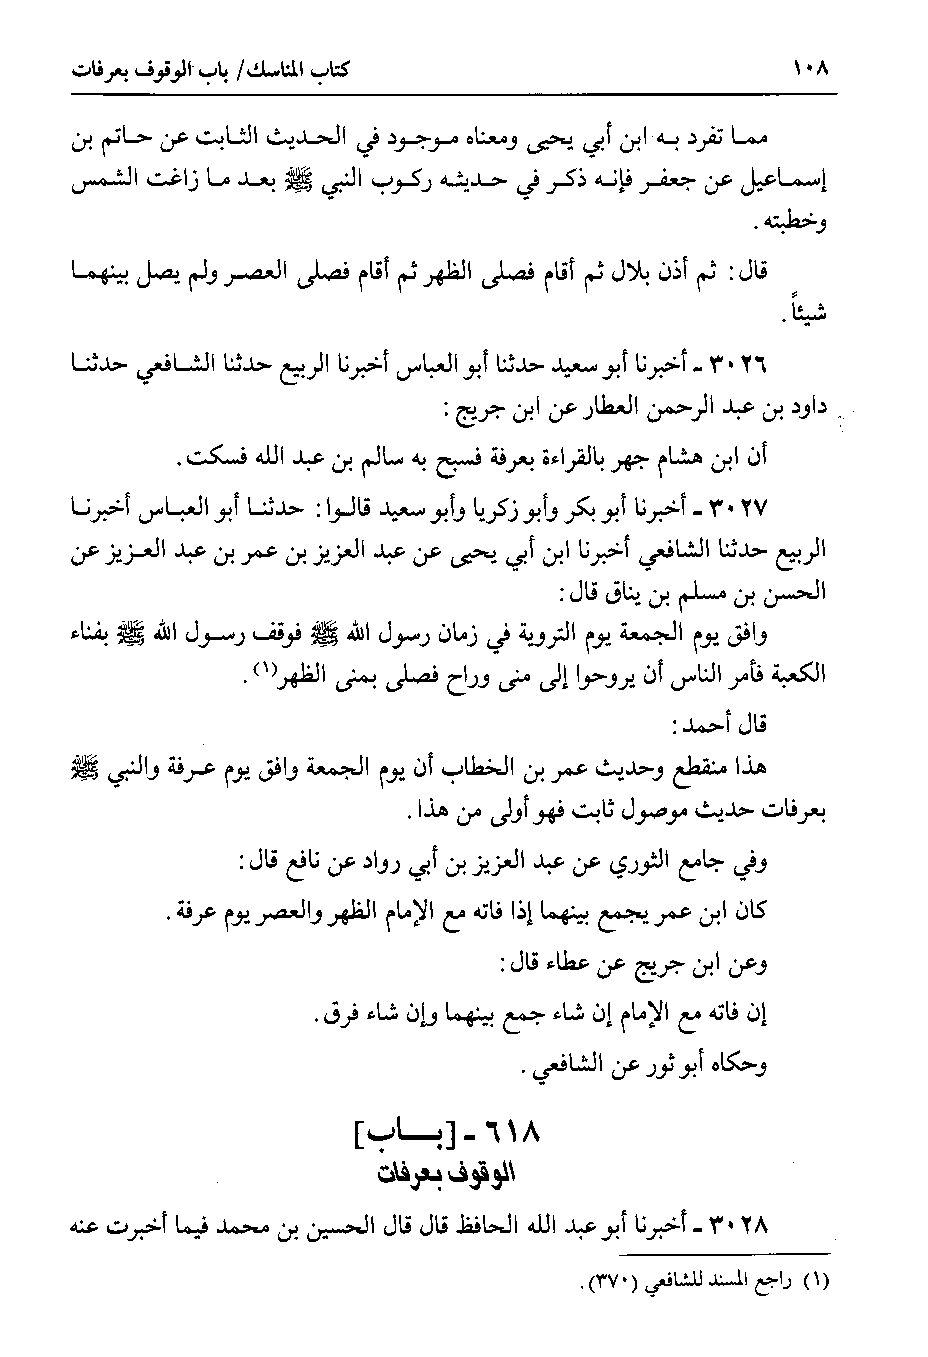 ١٠٨ كتاب المناسك/ باب الوقوف بعرفات
مما تفرد به ابن أبي يحيى ومعناه موجود في الحديث الثابت عن حاتم بن
إسماعيل عن جعفر فإنه ذكر في حديثه ركوب النبي ﷺ بعد ما زاغت الشمس
وخطبته.
قال: ثم أذن بلال ثم أقام فصلى الظهر ثم أقام فصلى العصر ولم يصل بينهما
شيئاً.
٣٠٢٦ - أخبرنا أبو سعيد حدثنا أبو العباس أخبرنا الربيع حدثنا الشافعي حدثنا
داود بن عبد الرحمن العطار عن ابن جريج:
أن ابن هشام جهر بالقراءة بعرفة فسبح به سالم بن عبد الله فسكت.
٣٠٢٧ - أخبرنا أبو بكر وأبو زكريا وأبو سعيد قالوا: حدثنا أبو العباس أخبرنا
الربيع حدثنا الشافعي أخبرنا ابن أبي يحيى عن عبد العزيز بن عمر بن عبد العزيز عن
الحسن بن مسلم بن يناق قال:
وافق يوم الجمعة يوم التروية في زمان رسول الله ﷺ فوقف رسول الله ﷺ بفناء
الكعبة فأمر الناس أن يروحوا إلى منى وراح فصلى بمنى الظهر(١).
قال أحمد:
هذا منقطع وحديث عمر بن الخطاب أن يوم الجمعة وافق يوم عرفة والنبي ﷺ
بعرفات حديث موصول ثابت فهو أولى من هذا.
وفي جامع الثوري عن عبد العزيز بن أبي رواد عن نافع قال:
كان ابن عمر يجمع بينهما إذا فاته مع الإمام الظهر والعصر يوم عرفة.
وعن ابن جريج عن عطاء قال:
إن فاته مع الإمام إن شاء جمع بينهما وإن شاء فرق.
وحكاه أبو ثور عن الشافعي.
٦١٨ - [باب]
الوقوف بعرفات
٣٠٢٨ - أخبرنا أبو عبد الله الحافظ قال قال الحسين بن محمد فيما أخبرت عنه
(١) راجع المسند للشافعي (٣٧٠).